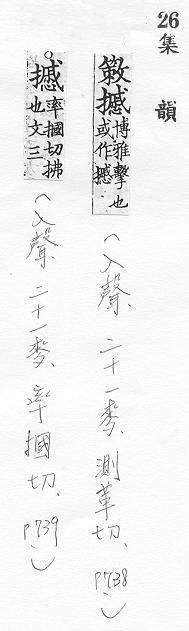 26
集韻
撼博雅擊也或作撼
(入聲、二十一麥、測革切、P738)
○撼率摑切拂也文三
(入聲、二十一麥、率摑切、P739)